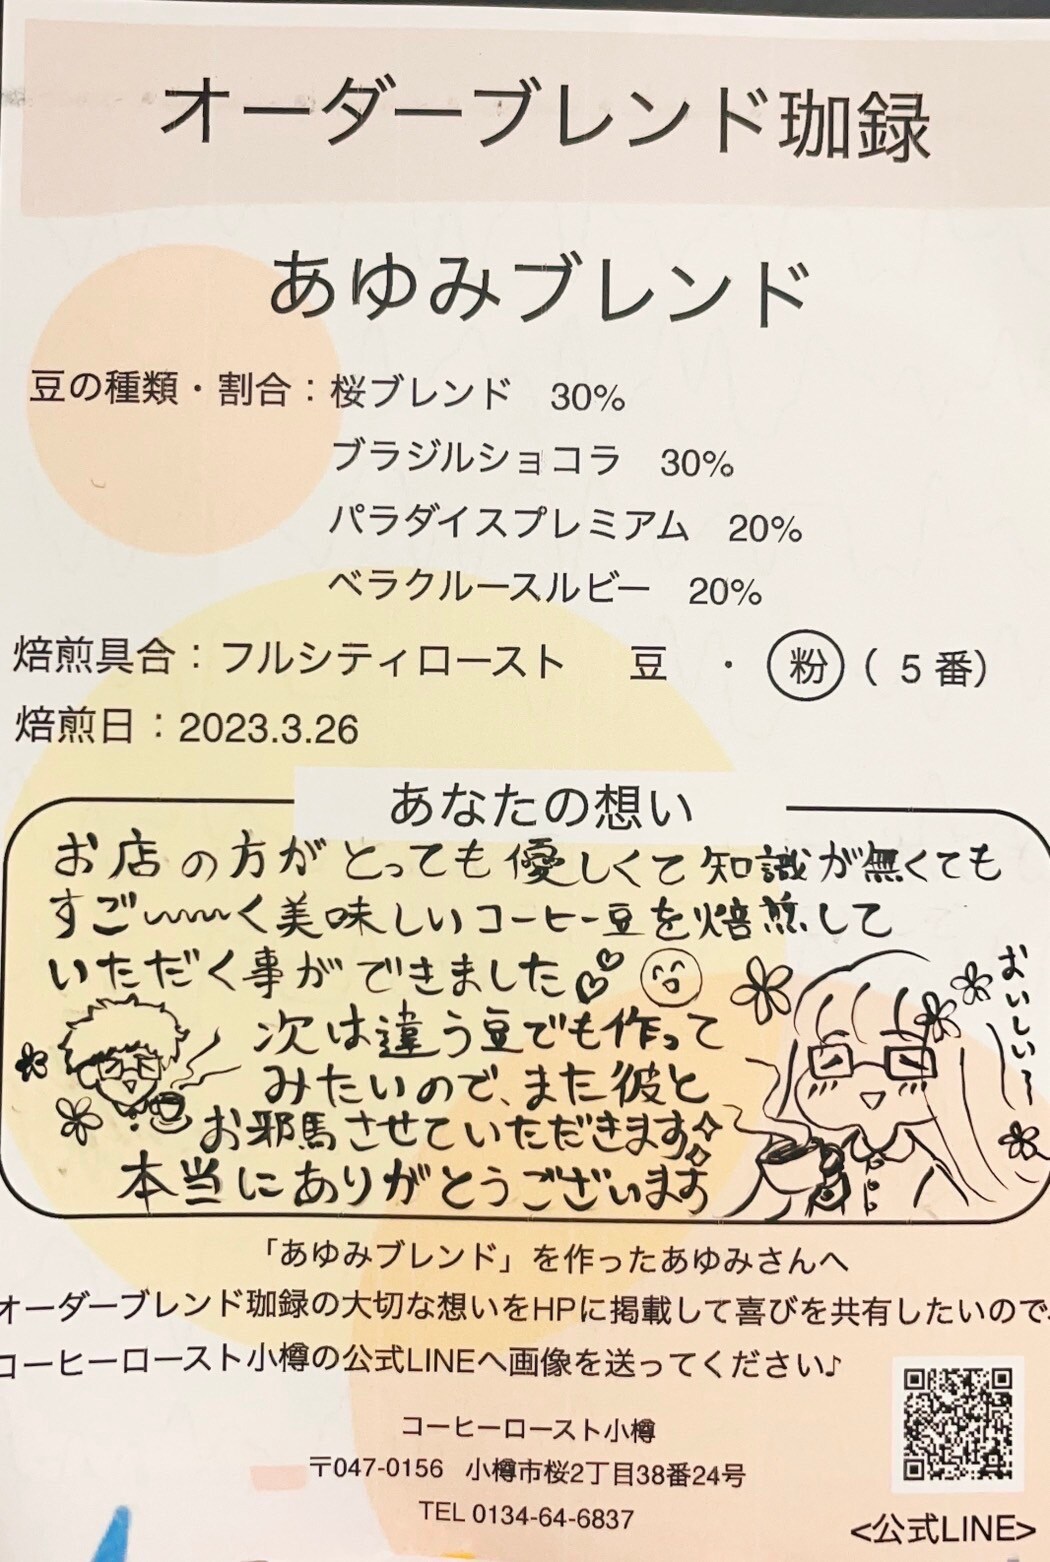 オーダーブレンド珈録
あゆみブレンド
豆の種類・割合：桜ブレンド　30%
ブラジルショコラ　30%
パラダイスプレミアム　20%
ベラクルースルビー　20%
焙煎具合：フルシティロースト　豆　・　粉（ 5 番）
焙煎日：2023.3.26
あなたの想い
お店の方がとっても優しくて知識が無くても
すご〜〜〜く美味しいコーヒー豆を焙煎して
いただく事ができました
次は違う豆でも作って
みたいので、また彼と
お邪馬させていただきます
本当にありがとうございます
おいしい〜
「あゆみブレンド」を作ったあゆみさんへ
オーダーブレンド珈録の大切な想いをHPに掲載して喜びを共有したいので、
コーヒーロースト小樽の公式LINEへ画像を送ってください♪
コーヒーロースト小樽
〒047-0156　小樽市桜2丁目38番24号
TEL 0134-64-6837
<公式LINE>